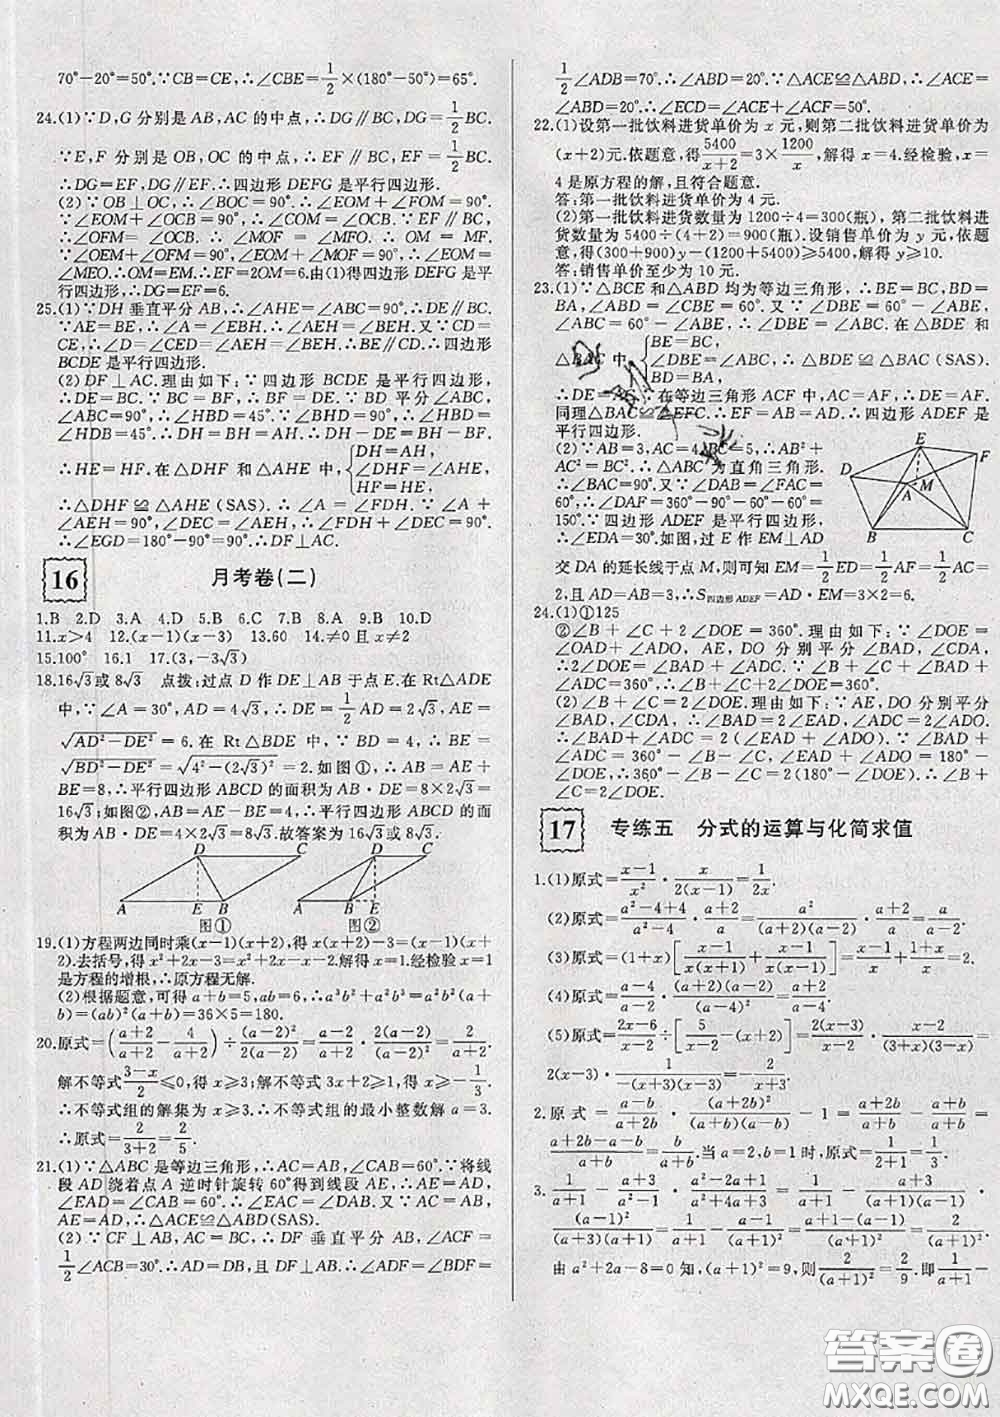 70°-20°=50°.∵CB=CE,∴∠CBE=1/2×(180°-50°)=65°.
24.(1)∵D,G 分别是 AB,AC 的中点,∴DG∥BC,DG=1/2BC.
∵E,F 分别是 OB,OC 的中点,∴EF∥BC,EF=1/2BC.
∴DG=EF,DG∥EF.∴四边形 DEFG 是平行四边形.
(2)∵OB⊥OC,∴∠BOC=90°.∴∠EOM+∠FOM=90°.
∵∠EOM+∠OCB=90°,∴∠FOM=∠OCB.∵EF∥BC,
∴∠OFM=∠OCB.∴∠MOF=∠MFO.∴OM=MF.
∵∠OEM+∠OFM=90°,∠EOM+∠FOM=90°,∴∠EOM=
∠MEO.∴OM=EM.∴EF=2OM=6.由(1)得四边形 DEFG 是平
行四边形,∴DG=EF=6.
25.(1)∵DH 垂直平分 AB,∴∠AHE=∠ABC=90°.∴DE∥BC.
∵AE=BE,∴∠A=∠EBH.∴∠AEH=∠BEH.又∵CD=
CE,∴∠D=∠CED=∠AEH=∠BEH.∴BE∥CD.∴四边形
BCDE 是平行四边形.
(2)DF⊥AC.理由如下:∵四边形 BCDE 是平行四边形,
∴DE=BC.∵BC=BF,∴BF=DE.∵BD 平分∠ABC,
∠ABC=90°,∴∠HBD=45°.∵∠BHD=90°,∴∠HBD=
∠HDB=45°.∴DH=BH.∴DH-DE=BH-BF.
∴HE=HF.在△DHF 和△AHE 中,{DH=AH,
∠DHF=∠AHE,
HF=HE,
∴△DHF≌△AHE(SAS).∴∠A=∠FDH.∵∠A+
∠AEH=90°,∠DEC=∠AEH,∴∠FDH+∠DEC=90°.
∴∠EGD=180°-90°=90°.∴DF⊥AC.
16 月考卷(二)
1.B 2.D 3.A 4.D 5.B 6.C 7.B 8.A 9.B 10.D
11.x>4 12.(x-1)(x-3) 13.60 14.≠0且x≠2
15.100° 16.1 17.(3,-3√3)
18.16√3或8√3 点拨:过点 D 作 DE⊥AB 于点 E.在 Rt△ADE
中,∵∠A=30°,AD=4√3,∴DE=1/2AD=2√3,AE=
√(AD²-DE²)=6.在 Rt△BDE 中,∵BD=4,∴BE=
√(BD²-DE²)=√(4²-(2√3)²)=2.如图①,∴AB=AE+
BE=8,∴平行四边形 ABCD 的面积为 AB·DE=8×2√3=
16√3;如图②,AB=AE-BE=4,∴平行四边形 ABCD 的面
积为 AB·DE=4×2√3=8√3.故答案为 16√3或8√3.
D C D C
A E B A B E
图① 图②
19.(1)方程两边同时乘(x-1)(x+2),得 x(x+2)-3=(x-1)(x+
2).去括号,得 x²+2x-3=x²+x-2.解得 x=1.经检验 x=1
是方程的增根,∴原方程无解.
(2)根据题意,可得 a+b=5,ab=6,∴a³b²+a²b³=a²b²(a+
b)=(ab)²(a+b)=36×5=180.
20.原式=((a+2)/(a+2)-4/(a+2))÷(a-2)²/2(a-2)=(a-2)/(a+2)·2(a-2)/(a-2)²=2/(a+2).
解不等式(3-x)/2≤0,得 x≥3;解不等式 3x+2≥1,得 x≥-1/3.
∴不等式组的解集为 x≥3.∴不等式组的最小整数解 a=3.
∴原式=2/(3+2)=2/5.
21.(1)∵△ABC 是等边三角形,∴AC=AB,∠CAB=60°.∵将线
段 AD 绕着点 A 逆时针旋转 60°得到线段 AE,∴AE=AD,
∠EAD=∠CAB=60°.∴∠EAC=∠DAB.又∵AC=AB,
AE=AD,∴△ACE≌△ABD(SAS).
(2)∵CF⊥AB,AC=BC,∴DF 垂直平分 AB,∠ACF=
1/2∠ACB=30°.∴AD=DB,且 DF⊥AB.∴∠ADF=∠BDF=
1/2∠ADB=70°.∴∠ABD=20°.∵△ACE≌△ABD,∴∠ACE=
∠ABD=20°.∴∠ECD=∠ACE+∠ACF=50°.
22.(1)设第一批饮料进货单价为 x 元,则第二批饮料进货单价为
(x+2)元.依题意,得5400/(x+2)=3×1200/x,解得 x=4.经检验,x=
4 是原方程的解,且符合题意.
答:第一批饮料进货单价为 4 元.
(2)第一批饮料进货数量为 1200÷4=300(瓶),第二批饮料进
货数量为 5400÷(4+2)=900(瓶).设销售单价为 y 元,依题
意,得(300+900)y-(1200+5400)≥5400,解得 y≥10.
答:销售单价至少为 10 元.
23.(1)∵△BCE 和△ABD 均为等边三角形,∴BE=BC,BD=
BA,∠ABD=∠CBE=60°.又∵∠DBE=60°-∠ABE,
∠ABC=60°-∠ABE,∴∠DBE=∠ABC.在△BDE 和
△BAC 中,{BE=BC,
∠DBE=∠ABC,∴△BDE≌△BAC(SAS).
BD=BA,
∴DE=AC.∵在等边三角形 ACF 中,AC=AF,∴DE=AF.
同理△BAC≌△EFC.∴EF=BA=DA.∴四边形 ADEF 是
平行四边形.
(2)∵AB=3,AC=4,BC=5,∴AB²+
AC²=BC².∴△ABC 为直角三角形.
∴∠BAC=90°.又∵∠DAB=∠FAC=
60°,∴∠DAF=360°-90°-60°-60°=
150°.∵四边形 ADEF 是平行四边形,
∴∠EDA=30°.如图,过 E 作 EM⊥AD
E
D F
A M
B C
交 DA 的延长线于点 M,则可知 EM=1/2ED=1/2AF=1/2AC=
2,且 AD=AB=3,∴S四边形ADEF=AD·EM=3×2=6.
24.(1)①125
②∠B+∠C+2∠DOE=360°.理由如下:∵∠DOE=
∠OAD+∠ADO,AE,DO 分别平分∠BAD,∠CDA,
∴2∠DOE=∠BAD+∠ADC.∵∠B+∠C+∠BAD+
∠ADC=360°,∴∠B+∠C+2∠DOE=360°.
(2)∠B+∠C=2∠DOE.理由如下:∵AE,DO 分别平分
∠BAD,∠CDA,∴∠BAD=2∠EAD,∠ADC=2∠ADO.
∴∠BAD+∠ADC=2(∠EAD+∠ADO).∵∠BAD+
∠ADC=360°-∠B-∠C,∠EAD+∠ADO=180°-
∠DOE,∴360°-∠B-∠C=2(180°-∠DOE).∴∠B+
∠C=2∠DOE.
17 专练五 分式的运算与化简求值
1.(1)原式=(x-1)/x²·x/2(x-1)=1/2x.
(2)原式=(a²-4+4)/(a²-4)·(a+2)/a=a²/(a+2)(a-2)·(a+2)/a=a/(a-2).
(3)原式=(1+x)[x/x(x+1)+1/x(x+1)]+(x-1)/x=(1+x)/x+(x-1)/x=2.
(4)原式=(a-4)/(a-2)·(a+2)(a-2)/(a-4)=a+2.
(5)原式=(2x-6)/(x-2)÷[5/(x-2)-(x+2)]=2(x-3)/(x-2)·(x-2)/(3+x)(3-x)=
2(x-3)·1/-(x+3)(x-3)=-2/(x+3).
2.原式=(a-b)/(a+2b)·(a+2b)²/(a+b)(a-b)-1=(a+2b)/(a+b)-(a+b)/(a+b)=
(a+2b-a-b)/(a+b)=b/(a+b).当 a=2,b=1 时,原式=1/(2+1)=1/3.
3.1/(a+1)-(a+3)/(a²-1)·(a²-2a+1)/(a²+4a+3)=1/(a+1)-(a+3)/(a+1)(a-1)·
(a-1)²/(a+3)(a+1)=1/(a+1)-(a-1)/(a+1)²=(a+1-(a-1))/(a+1)²=2/(a+1)².
由 a²+2a-8=0 知,(a+1)²=9,则2/(a+1)²=2/9.即1/(a+1)-
答案圈
MXQE.COM